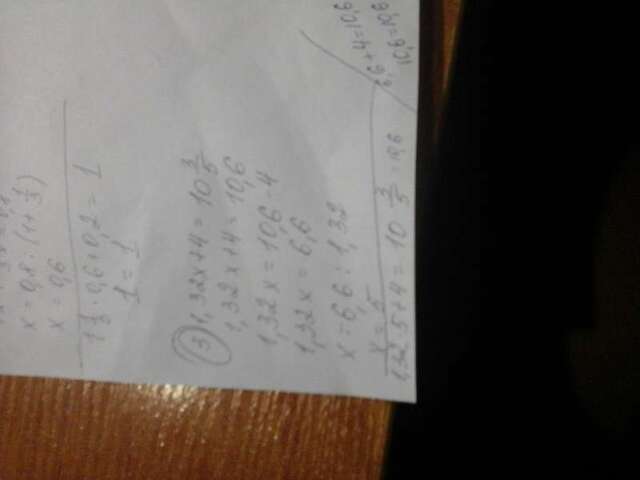 x = 0,8 : (1 + 1/3)
x = 0,6
1 1/3 · 0,6 + 0,2 = 1
1 = 1
③ 1,32x + 4 = 10 3/5
1,32x + 4 = 10,6
1,32x = 10,6 - 4
1,32x = 6,6
x = 6,6 : 1,32
x = 5
1,32 · 5 + 4 = 10 3/5 = 10,6
6,6 + 4 = 10,6
10,6 = 10,6